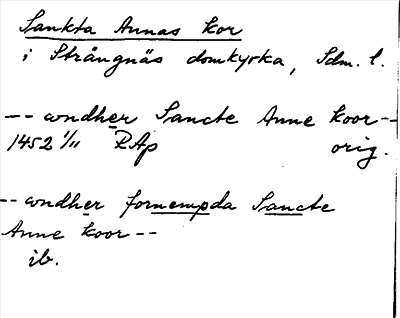 Sankta Annas kor
i Strångnäs domkyrka, Sdm. l.
-- wndher Sancte Anne koor --
1452 1/11 RAp orig.
-- wndher fornempda Sancte
Anne koor --
ib.